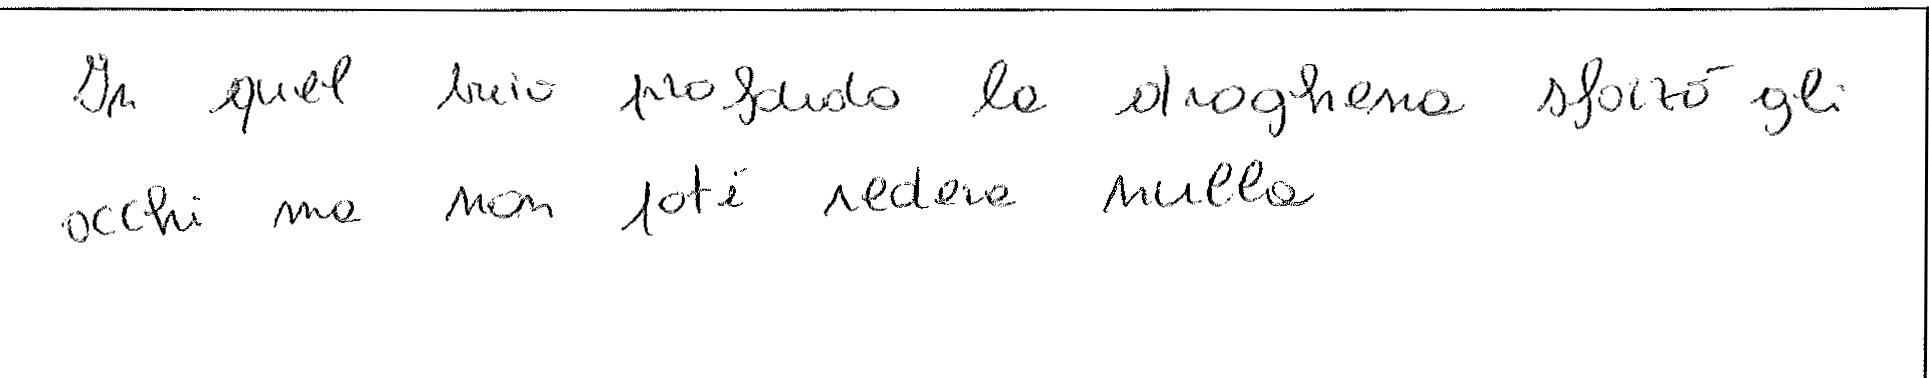 In quel buio profondo la droghena sforzò gli
occhi ma non poté vedere nulla